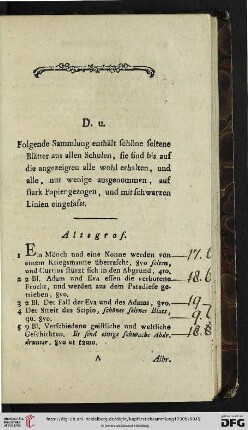 D. u.
Folgende Sammlung enthält schöne seltene
Blätter aus allen Schulen, sie sind bis auf
die angezeigten alle wohl erhalten, und
alle, nur wenige ausgenommen, auf
stark Papier gezogen, und mit schwarzen
Linien eingefasst.
Altegraf.
1 Ein Mönch und eine Nonne werden von
einem Kriegsmanne überrascht, 8vo selten,
und Curtius stürzt sich in den Abgrund, 4to.
2 2 Bl. Adam und Eva essen die verbotene
Frucht, und werden aus dem Paradiese ge-
trieben, 8vo.
3 2 Bl. Der Fall der Eva und des Adams, 8vo.
4 Der Streit des Scipio, schönes seltenes Blatt,
qu. 8vo.
5 9 Bl. Verschiedene geistliche und weltliche
Geschichten. Er sind einige schwache Abdr.
darunter, 8vo et 12mo.
A
Albr.